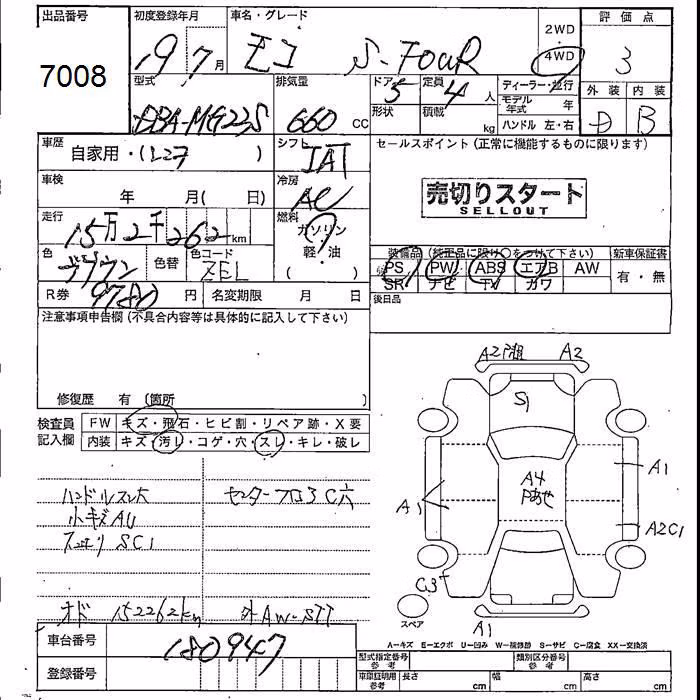 出品番号 初度登録年月 車名・グレード 2WD 評価点
7008 19 7月 モコ S-FOUR ・ 4WD 3
型式 排気量 ドア 5 定員 4人 ディーラー・並行 外装 内装
DBA-MG22S 660 CC 形状 積載 kg モデル年式 年 D B
ハンドル 左・右
車歴 シフト セールスポイント (正常に機能するものに限ります)
自家用・( ) IAT
車検 年 月( 日) 冷房 AC 売切りスタート
SELLOUT
走行 15万2千262km 燃料 ガソリン
軽・油
( )
色 ブラウン 色替 色コード ZEL
装備品 (純正品に限り○をつけて下さい) 新車保証書
PS PW ABS エアB AW 有・無
SR ナビ TV カワ
R券 9780円 名変期限 月 日 後日品
注意事項申告欄 (不具合内容等は具体的に記入して下さい)
修復歴 有 (箇所 )
検査員 FW キズ・飛石・ヒビ割・リペア跡・X要
記入欄 内装 キズ・汚レ・コゲ・穴・スレ・キレ・破レ
A2 A2
S1
A4
Pあせ
A1 A1
A2C1
C3
スペア
A1
ハンドルスレ大 センターフロアC穴
小キズAU
SC1
オド 152262km 外AW・STT
車台番号 180947
登録番号
A-キズ E-エクボ U-凹み W-補修跡 S-サビ C-腐食 XX-交換済
型式指定番号 参考 類別区分番号 参考
車庫証明用 参考 長さ cm 幅 cm 高さ cm